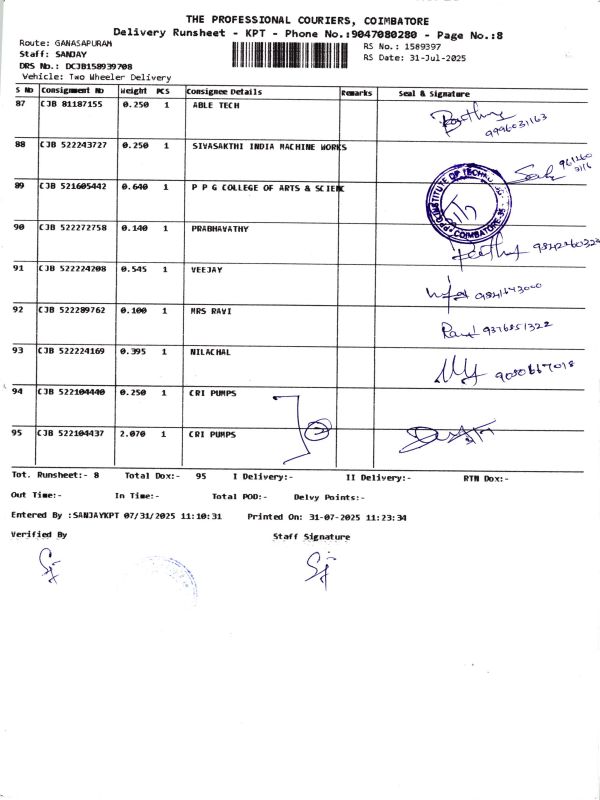 THE PROFESSIONAL COURIERS, COIMBATORE
Delivery Runsheet - KPT - Phone No.:9047080280 - Page No.:8
Route: GANASAPURAM
RS No.: 1589397
Staff: SANJAY
RS Date: 31-Jul-2025
DRS No.: DCJB158939708
Vehicle: Two Wheeler Delivery
S No Consignment No Weight PCS Consignee Details Remarks Seal & Signature
87 CJB 81187155 0.250 1 ABLE TECH
9996031163
88 CJB 522243727 0.250 1 SIVASAKTHI INDIA MACHINE WORKS
89 CJB 521605442 0.640 1 P P G COLLEGE OF ARTS & SCIENC
PPG INSTITUTE OF TECHNOLOGY COIMBATORE-35
90 CJB 522272758 0.140 1 PRABHAVATHY
91 CJB 522224208 0.545 1 VEEJAY
92 CJB 522289762 0.100 1 MRS RAVI
9376851322
93 CJB 522224169 0.395 1 NILACHAL
94 CJB 522104440 0.250 1 CRI PUMPS
95 CJB 522104437 2.070 1 CRI PUMPS
Tot. Runsheet:- 8 Total Dox:- 95 I Delivery:- II Delivery:- RTN Dox:-
Out Time:- In Time:- Total POD:- Delvy Points:-
Entered By :SANJAYKPT 07/31/2025 11:10:31 Printed On: 31-07-2025 11:23:34
Verified By Staff Signature